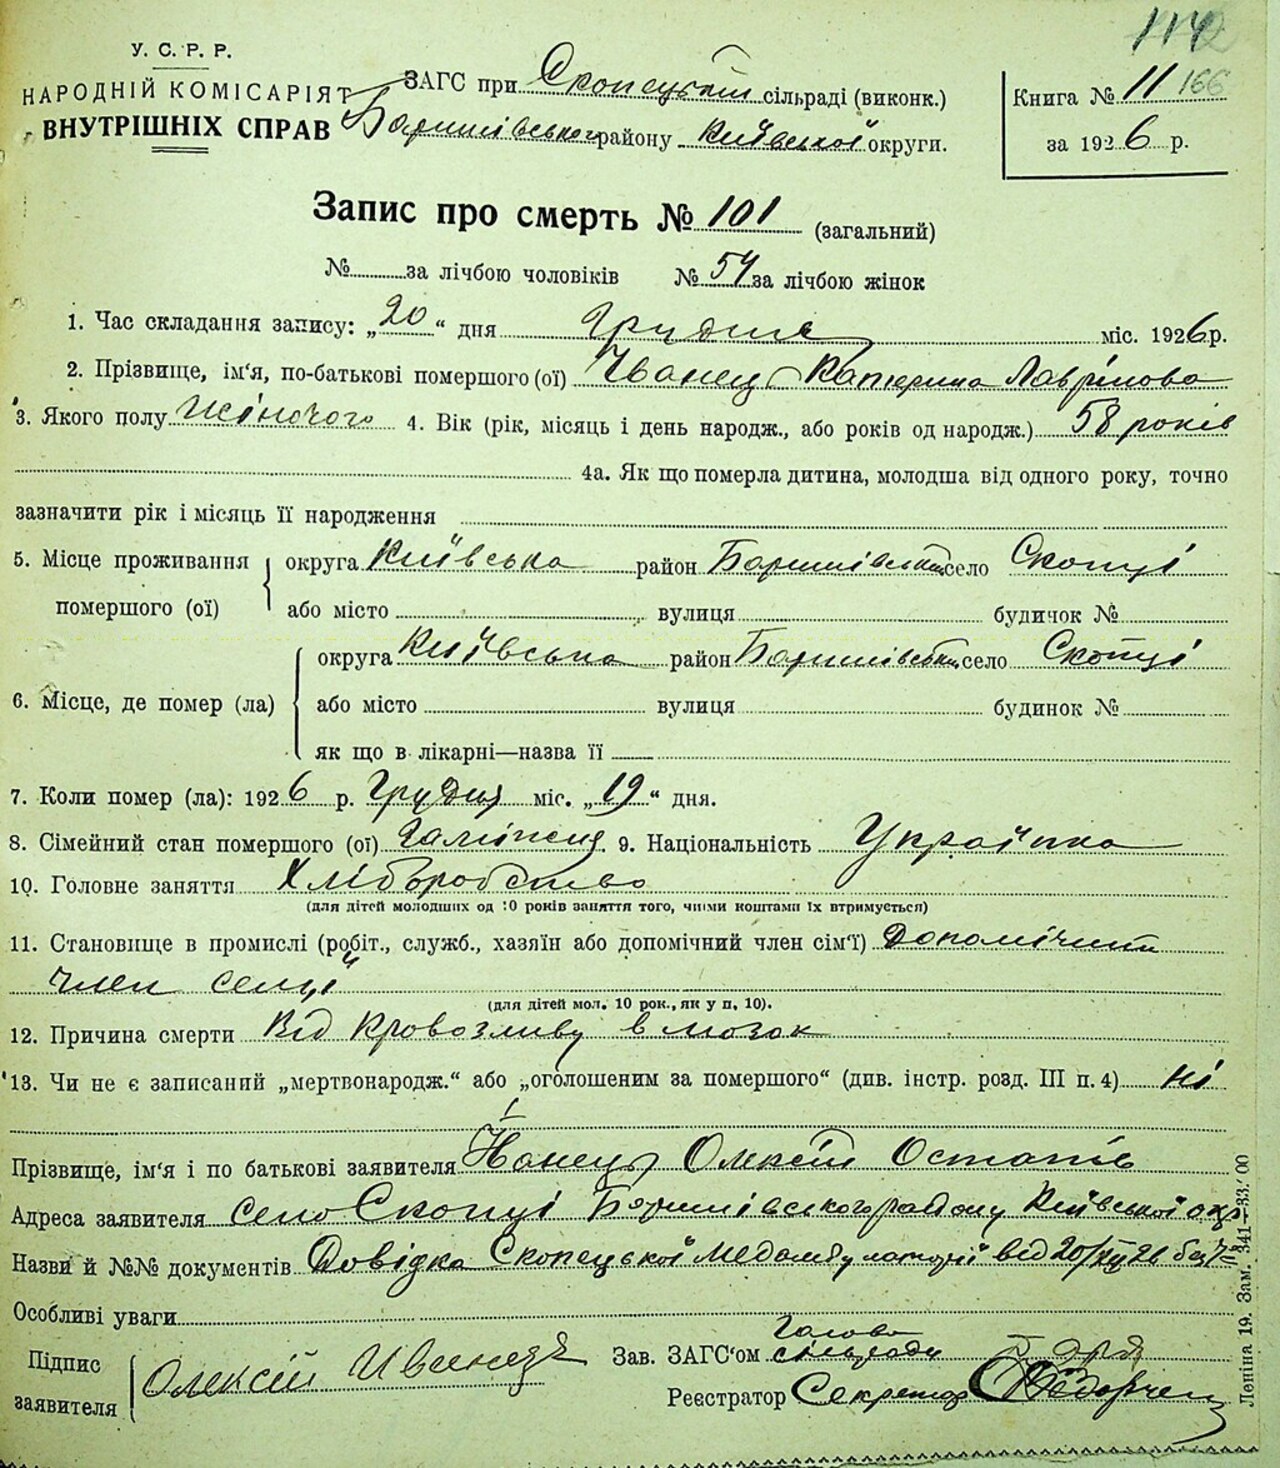 114
У. С. Р. Р.
НАРОДНІЙ КОМІСАРІЯТ
ВНУТРІШНІХ СПРАВ
ЗАГС при Скопецькій сільраді (виконк.)
Баришівського району Київської округи.
Книга № 11 166
за 1926 р.
Запис про смерть № 101 (загальний)
№ за лічбою чоловіків № 54 за лічбою жінок
1. Час складання запису: „20“ дня Грудня міс. 1926 р.
2. Прізвище, ім‘я, по-батькові помершого (ої) Іванец Катерина Лаврінова
3. Якого полу Жіночого 4. Вік (рік, місяць і день народж., або років од народж.) 58 років
4а. Як що померла дитина, молодша від одного року, точно
зазначити рік і місяць її народження
5. Місце проживання помершого (ої) округа Київська район Баришівський село Скопці
або місто вулиця будичок №
6. Місце, де помер (ла) округа Київська район Баришівський село Скопці
або місто вулиця будинок №
як що в лікарні—назва її
7. Коли помер (ла): 1926 р. Грудня міс. „19“ дня.
8. Сімейний стан помершого (ої) Заміжня 9. Національність Українка
10. Головне заняття Хліборобство
(для дітей молодших од 10 років заняття того, чиїми коштами їх втримується)
11. Становище в промислі (робіт., служб., хазяїн або допомічний член сім‘ї) Допомічний
член семці
(для дітей мол. 10 рок., як у п. 10).
12. Причина смерти Від Кровозливу в мозок
13. Чи не є записаний „мертвонародж.“ або „оголошеним за помершого“ (див. інстр. розд. III п. 4) ні
Прізвище, ім‘я і по батькові заявителя Іванец Олексій Остапів
Адреса заявителя село Скопці Баришівського району Київської окр.
Назви й №№ документів Довідка Скопецької Медамбулаторії від 20/XII 26 без №
Особливі уваги
Підпис заявителя Олексій Иванец
Зав. ЗАГС‘ом Голова сільради
Реєстратор Секретар
Леніна 19. Зам. 341—33.000